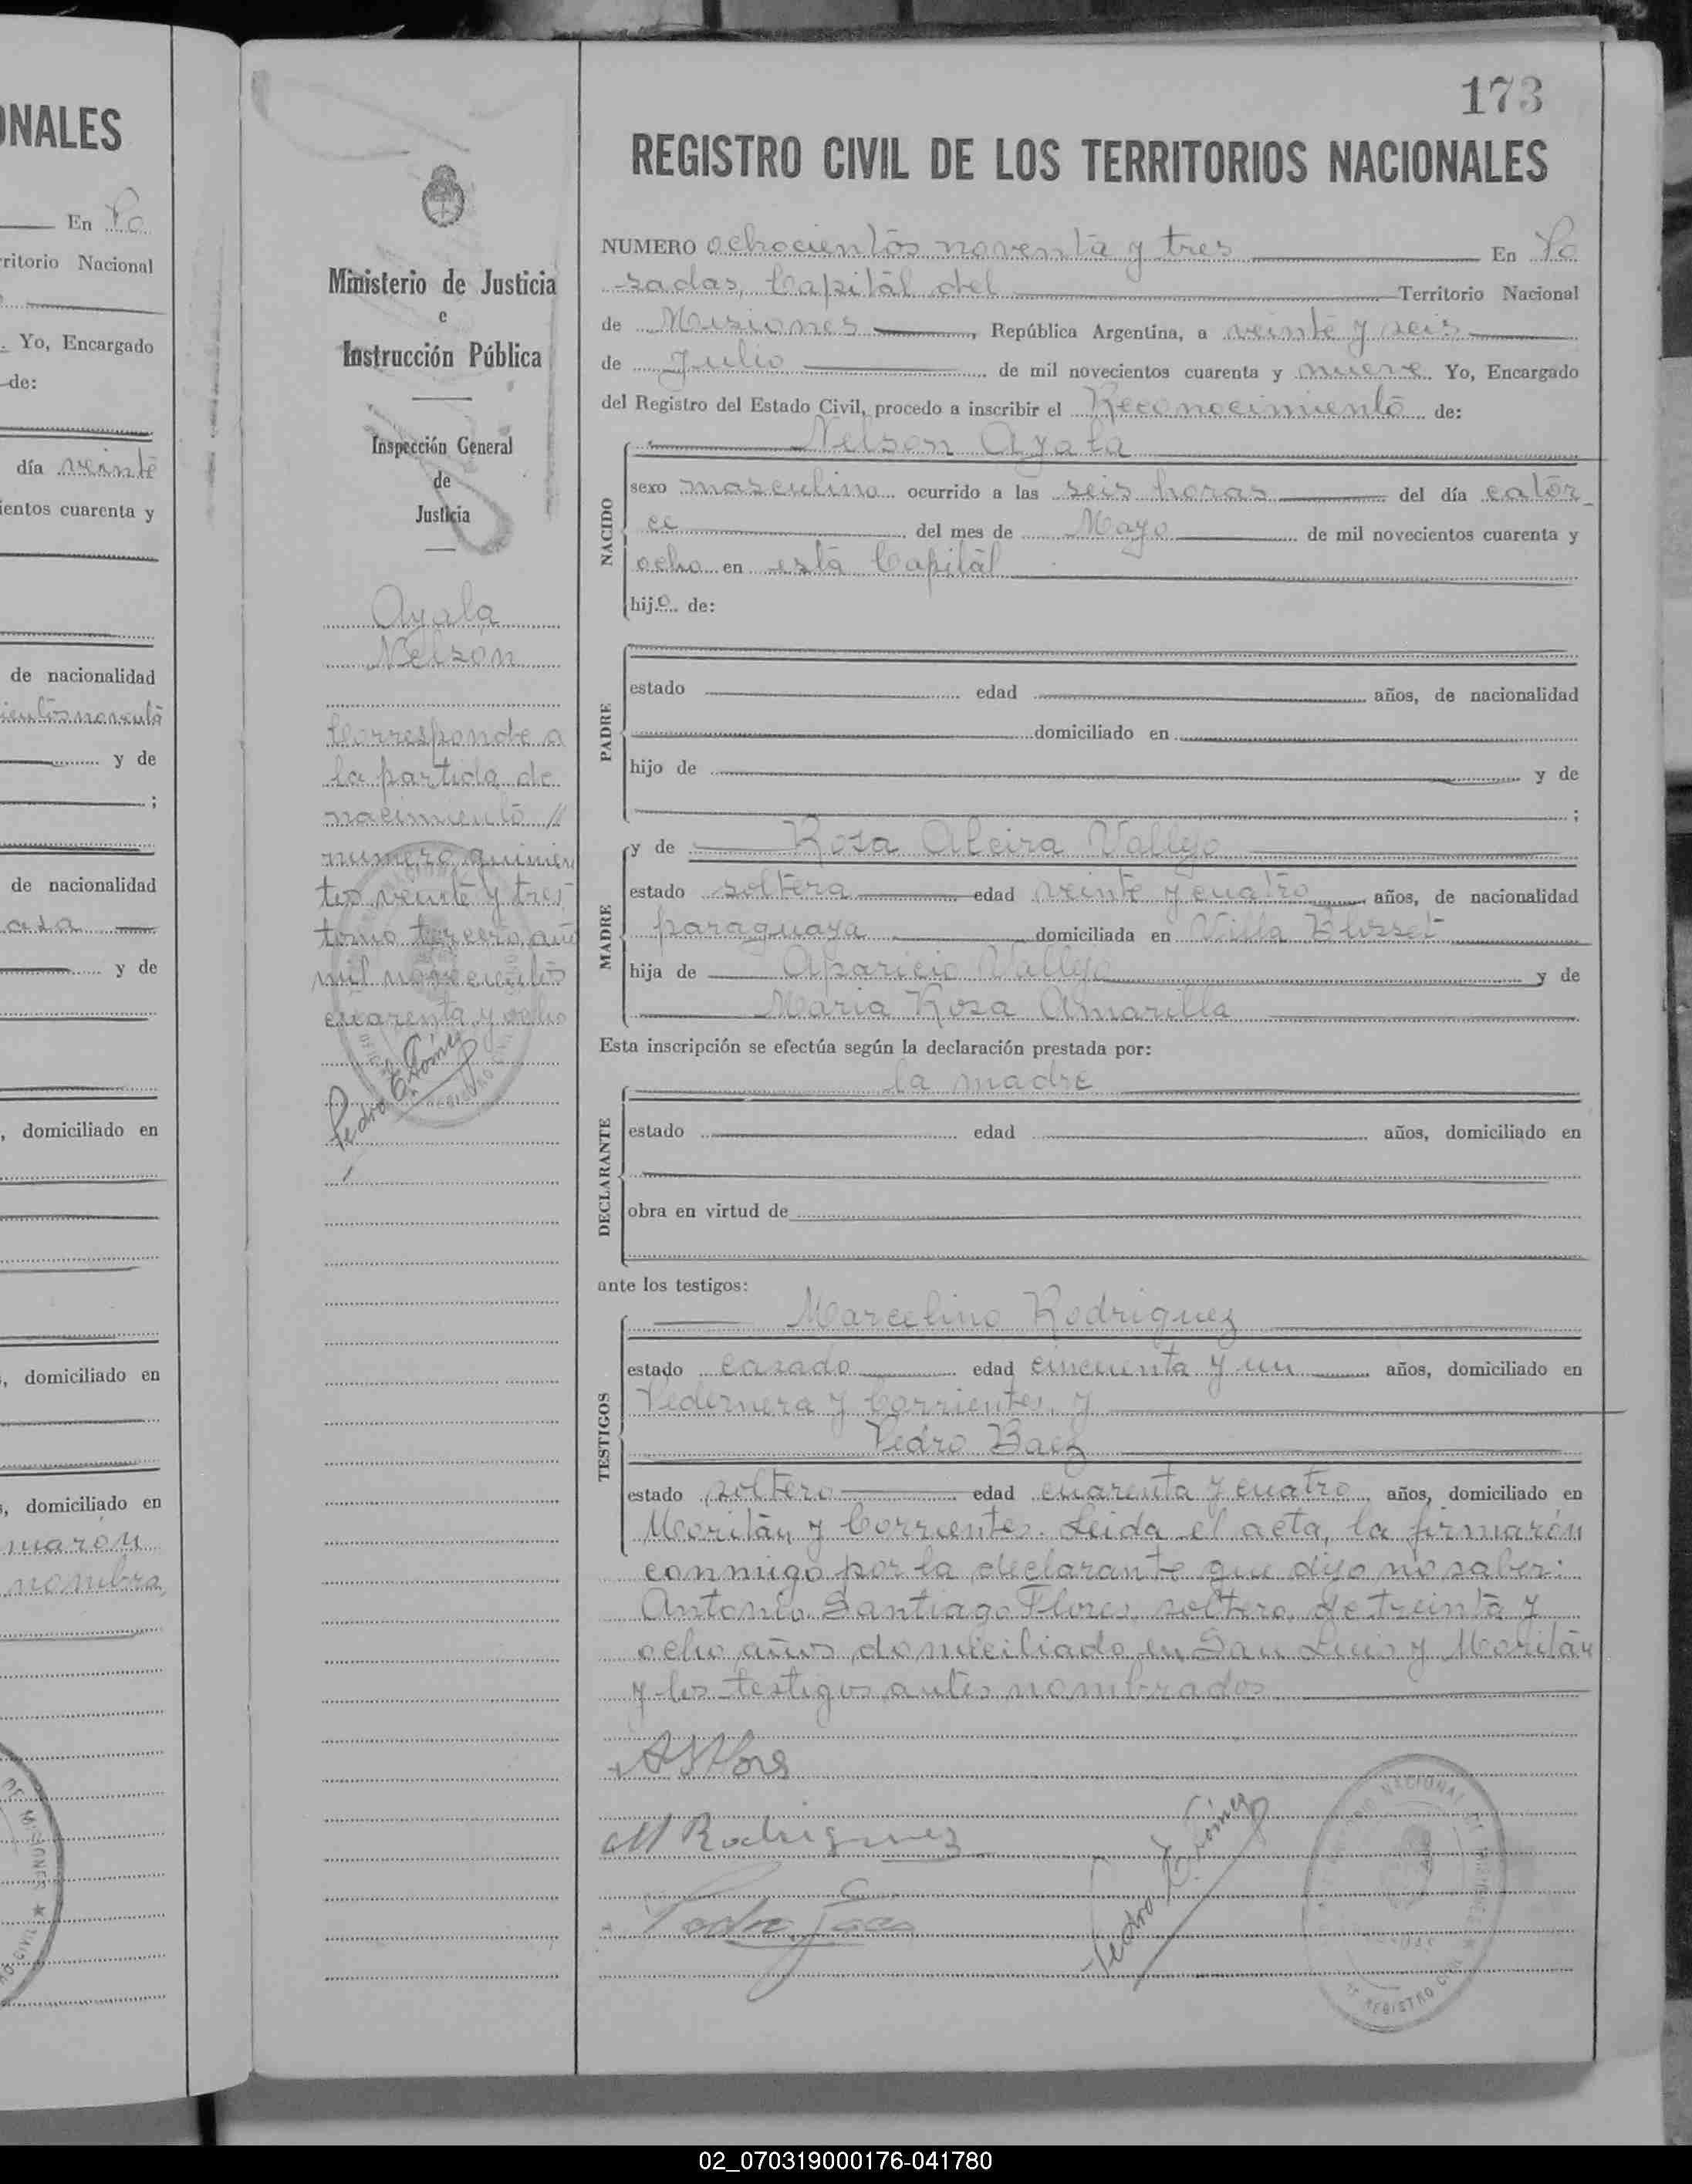 ONALES
En Po
rritorio Nacional
. Yo, Encargado
de:
día veinte
ientos cuarenta y
de nacionalidad
y de
;
de nacionalidad
y de
, domiciliado en
, domiciliado en
, domiciliado en
maron
nombra
DE MISIONES ★
Ministerio de Justicia
e
Instrucción Pública
Inspección General
de
Justicia
Ayala
Nelson
Corresponde a
la partida de
nacimiento //
numero quinien
tos veinte y tres
tomo tercero año
mil novecientos
cuarenta y ocho
173
REGISTRO CIVIL DE LOS TERRITORIOS NACIONALES
NUMERO ochocientos noventa y tres En Po
sadas, Capital del Territorio Nacional
de Misiones, República Argentina, a veinte y seis
de Julio de mil novecientos cuarenta y nueve Yo, Encargado
del Registro del Estado Civil, procedo a inscribir el Reconocimiento de:
Nelson Ayala
NACIDO
sexo masculino ocurrido a las seis horas del día cator_
ce del mes de Mayo de mil novecientos cuarenta y
ocho en esta Capital
hijo de:
PADRE
estado edad años, de nacionalidad
domiciliado en
hijo de y de
;
MADRE
y de Rosa Alcira Vallejo
estado soltera edad veinte y cuatro años, de nacionalidad
paraguaya domiciliada en Villa Blosset
hija de Aparicio Vallejo y de
Maria Rosa Amarilla
Esta inscripción se efectúa según la declaración prestada por:
la madre
DECLARANTE
estado edad años, domiciliado en
obra en virtud de
ante los testigos:
TESTIGOS
Marcelino Rodriguez
estado casado edad cincuenta y un años, domiciliado en
Pedernera y Corrientes, y
Pedro Baez
estado soltero edad cuarenta y cuatro años, domiciliado en
Moritán y Corrientes. Leida el acta, la firmarón
conmigo por la declarante que dijo no saber:
Antonio Santiago Flores, soltero, de treinta y
ocho años domiciliado en San Luis y Moritán
y los testigos antes nombrados
M Rodriguez
Pedro Baez
REGISTRO CIVIL
02_070319000176-041780